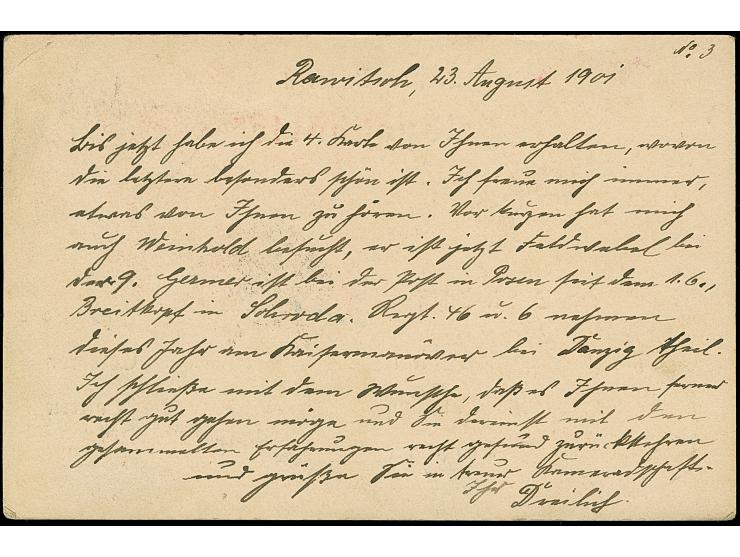 No. 3
Rawitsch, 23. August 1901
Bis jetzt habe ich die 4. Karte von Ihnen erhalten, wovon
die letztere besonders schön ist. Ich freue mich immer,
etwas von Ihnen zu hören. Vor kurzem hat mich
auch Weinhold besucht, er ist jetzt Feldwebel bei
der 9. Germer ist bei der Post in Posen seit dem 1.6.,
Breitkopf in Schroda. Regt. 46 u. 6 nehmen
dieses Jahr am Kaisermanöver bei Danzig theil.
Ich schließe mit dem Wunsche, daß es Ihnen ferner
recht gut gehen möge und Sie dereinst mit den
gesammelten Erfahrungen recht gesund zurückkehren
und grüße Sie in treuer Kameradschaft-
Ihr
Dreilich.